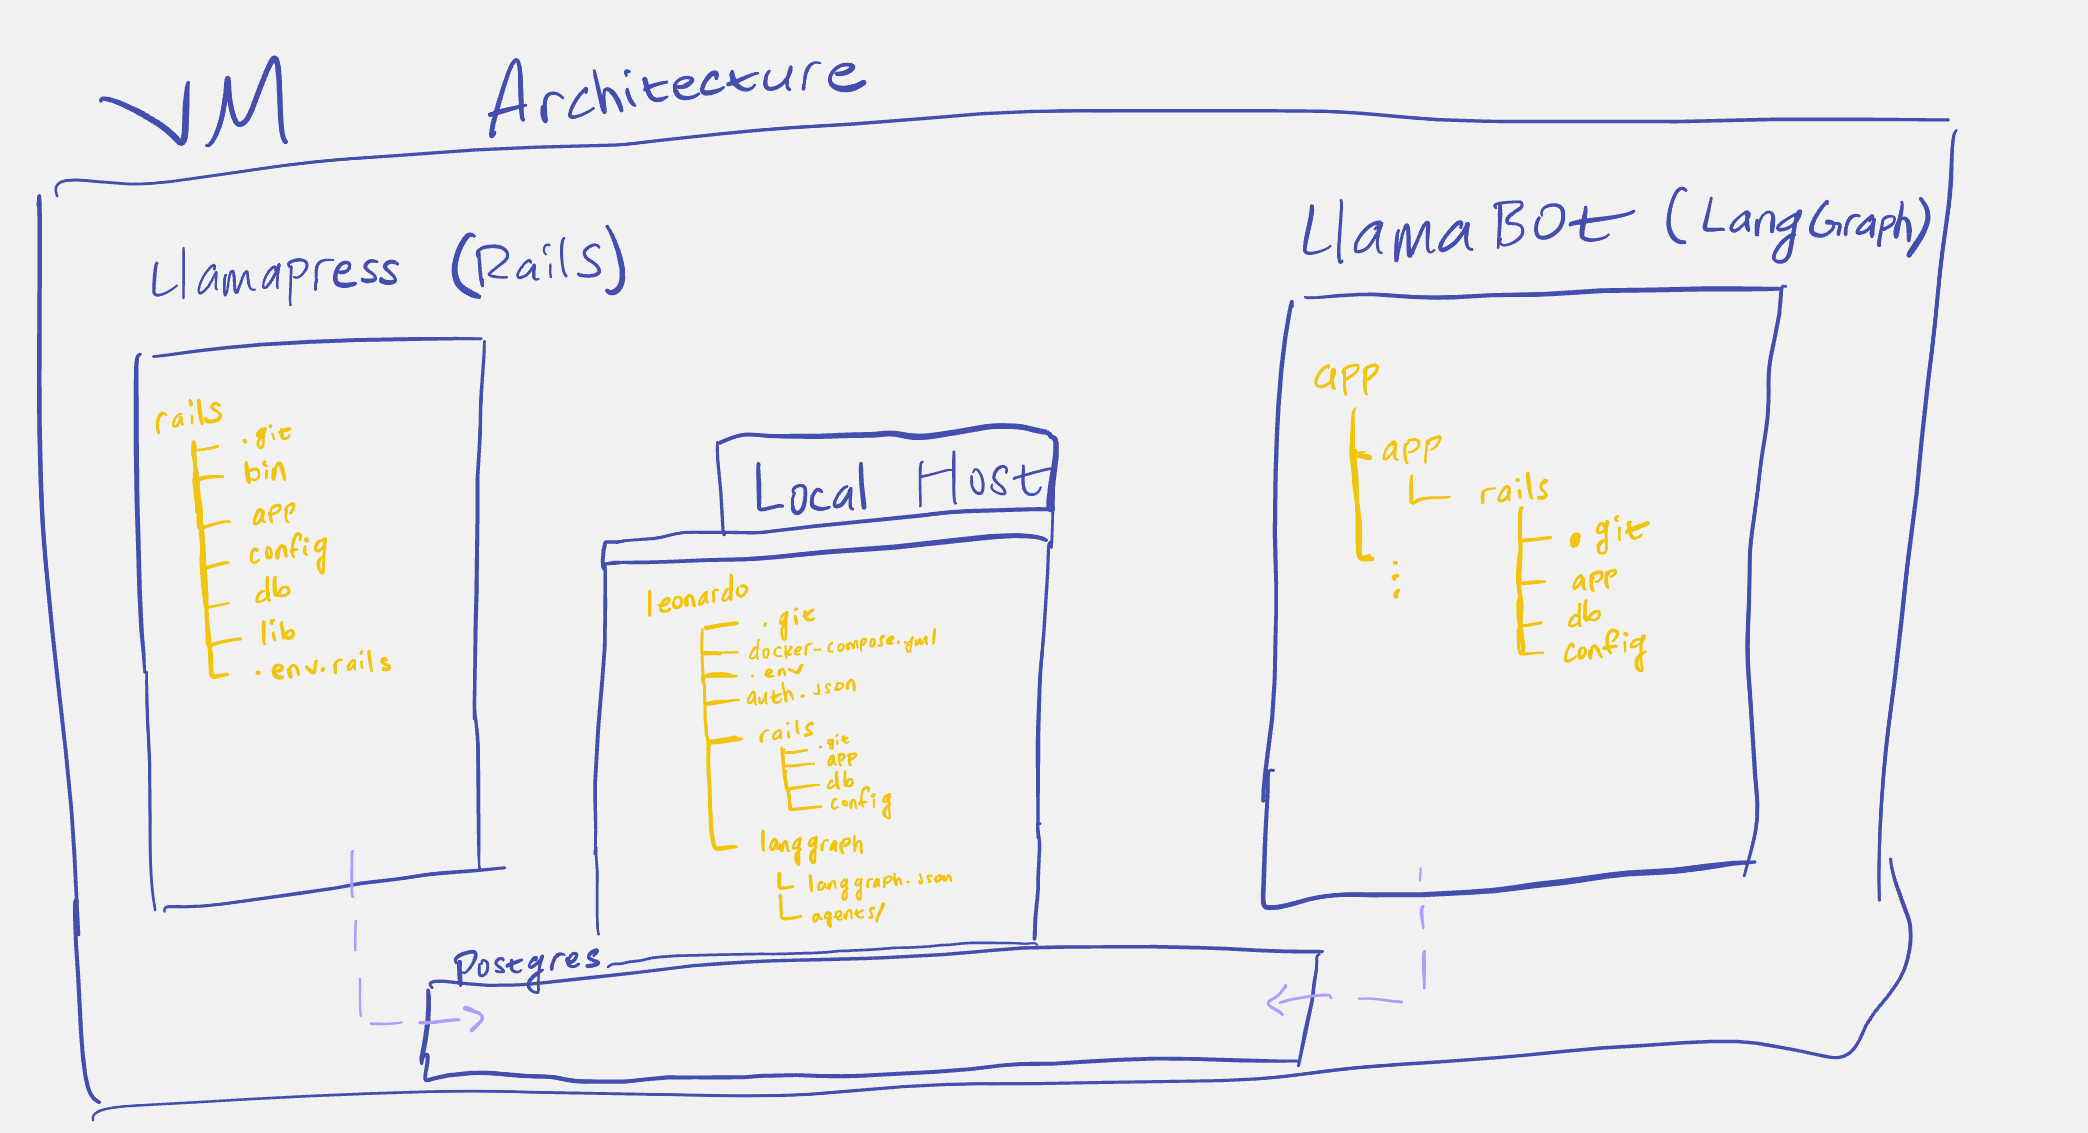 VM Architecture
Llamapress (Rails)
rails
.git
bin
app
config
db
lib
.env.rails
Local Host
leonardo
.git
docker-compose.yml
.env
auth.json
rails
.git
app
db
config
langgraph
langgraph.json
agents/
LlamaBOt (LangGraph)
app
app
rails
.git
app
db
config
Postgres